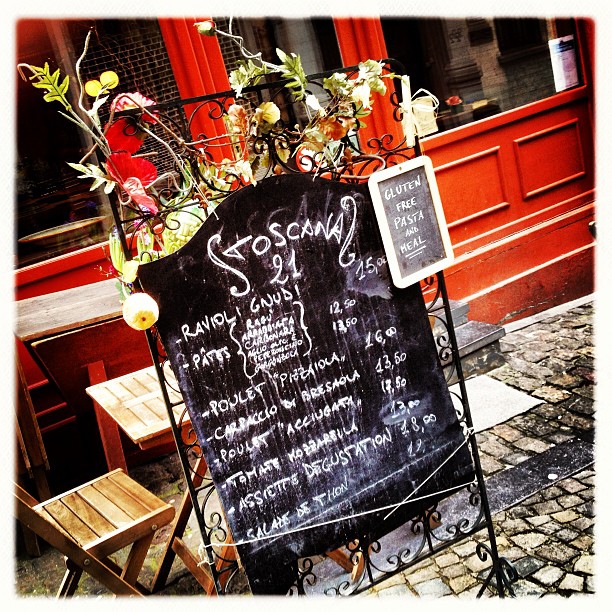 TOSCANA
21
GNUDI
- RAVIOLI 15,00
- PÂTES
RAGÙ 12,50
ARRABIATA 13,50
CARBONARA
AGLIO OLIO
PEPERONCINO
- POULET "PIZZAIOLA" 16,00
- CARPACCIO DI BRESAOLA 13,50
- POULET "ACCIUGATA"
- TOMATE MOZZARELLA 13,00
- ASSIETTE DÉGUSTATION 18,00
- SALADE DE THON
GLUTEN
FREE
PASTA
AND
MEAL